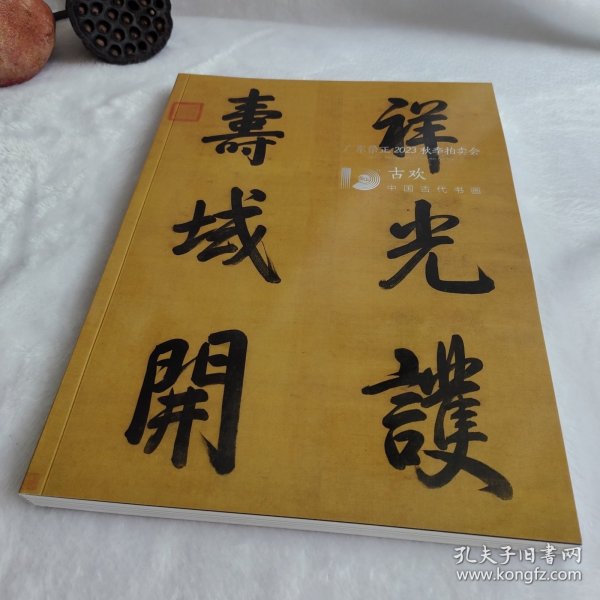 祥光護
壽域開
广东崇正2023秋季拍卖会
古欢
中国古代书画
孔夫子旧书网
www.kongfz.com